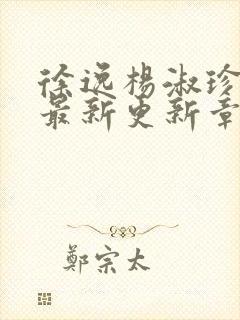 徐逸楊淑珍
最新更新章
鄭宗太